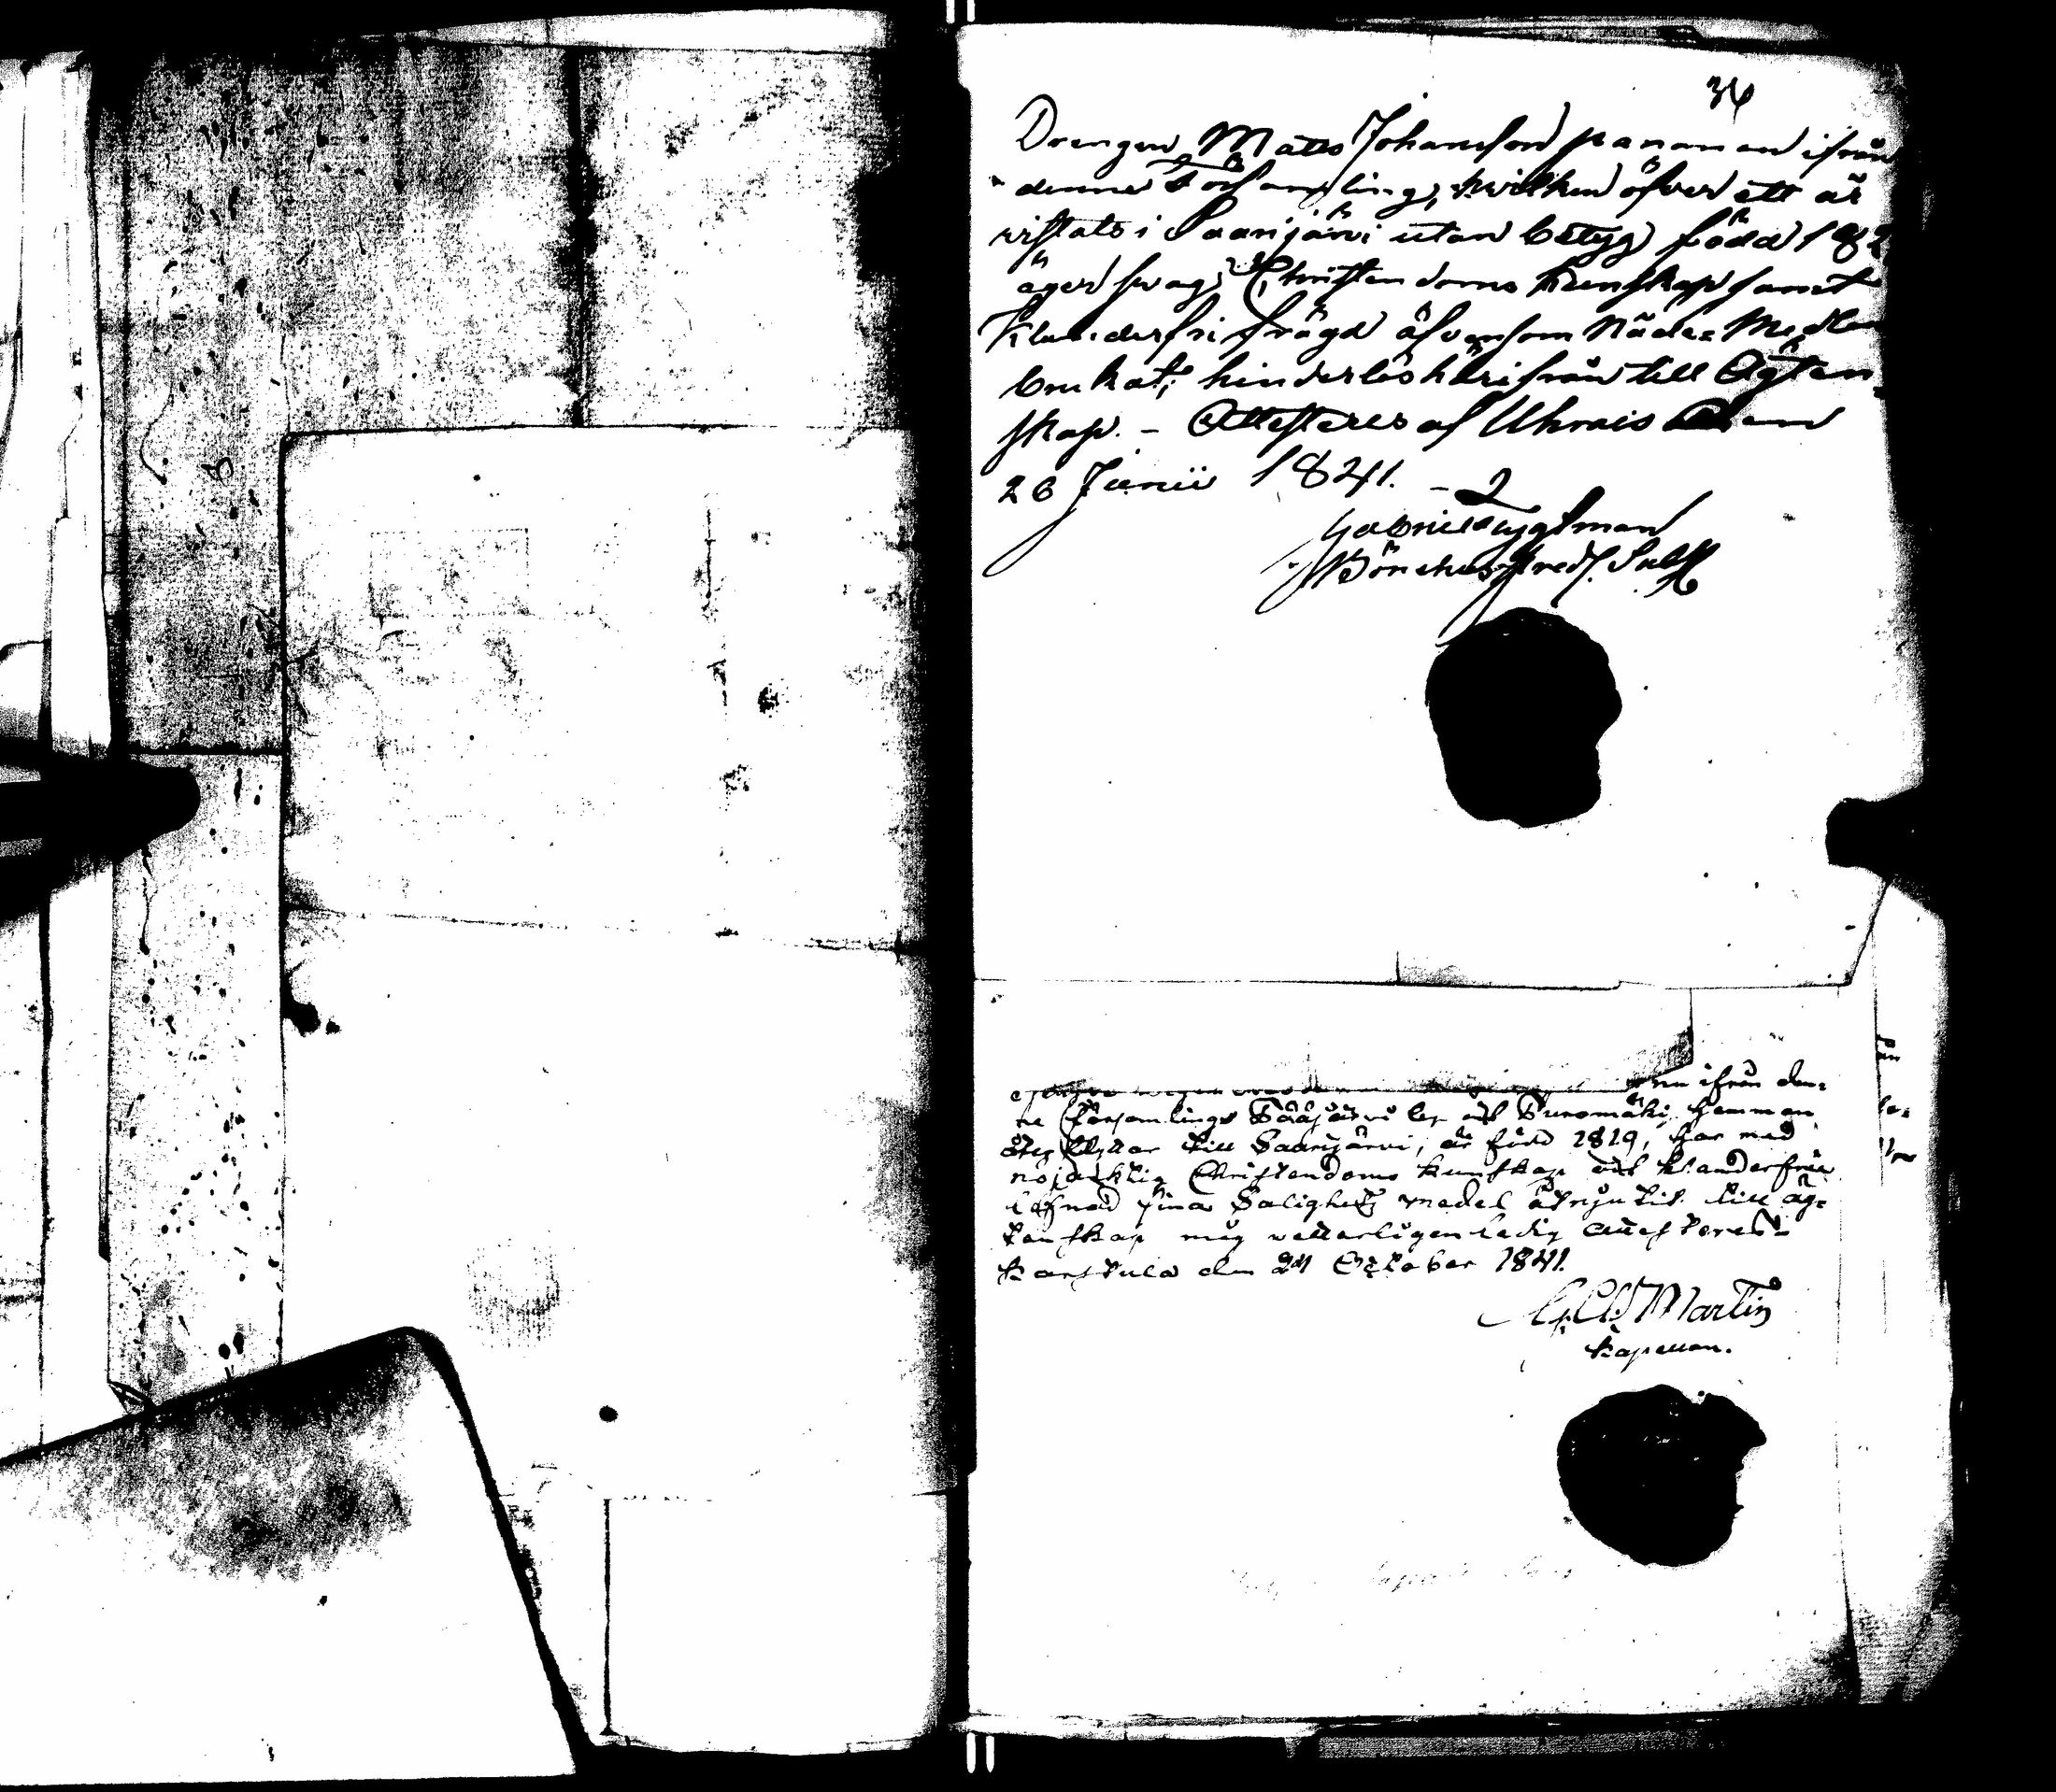 34
Drengen Matts Johansson Pananen ifrån
denne Församling, hvilken öfver ett år
vistats i Saarijärvi utan betyg född 182
äger svag Christendoms kunskap samt
Klanderfri frägd äfvensom Nåde Medlen
brukat; hinderlös härifrån till Ägten
skap. - Attesteres af Uhrais den
26 Junii 1841.
Gabriel Tygtman
Bönehuspred.
ifrån den-
ne Församlings Pääjärvi by och Puromäki hemman
flyttar till Saarijärvi, är född 1819, har med
nöjaktig Christendoms kunskap och klanderfri
lefnad sina Salighetz medel åtnjutit till äg-
tenskap mig vetterligen ledig attesteres
Karstula den 24 October 1841.
Martin
Kapellan.